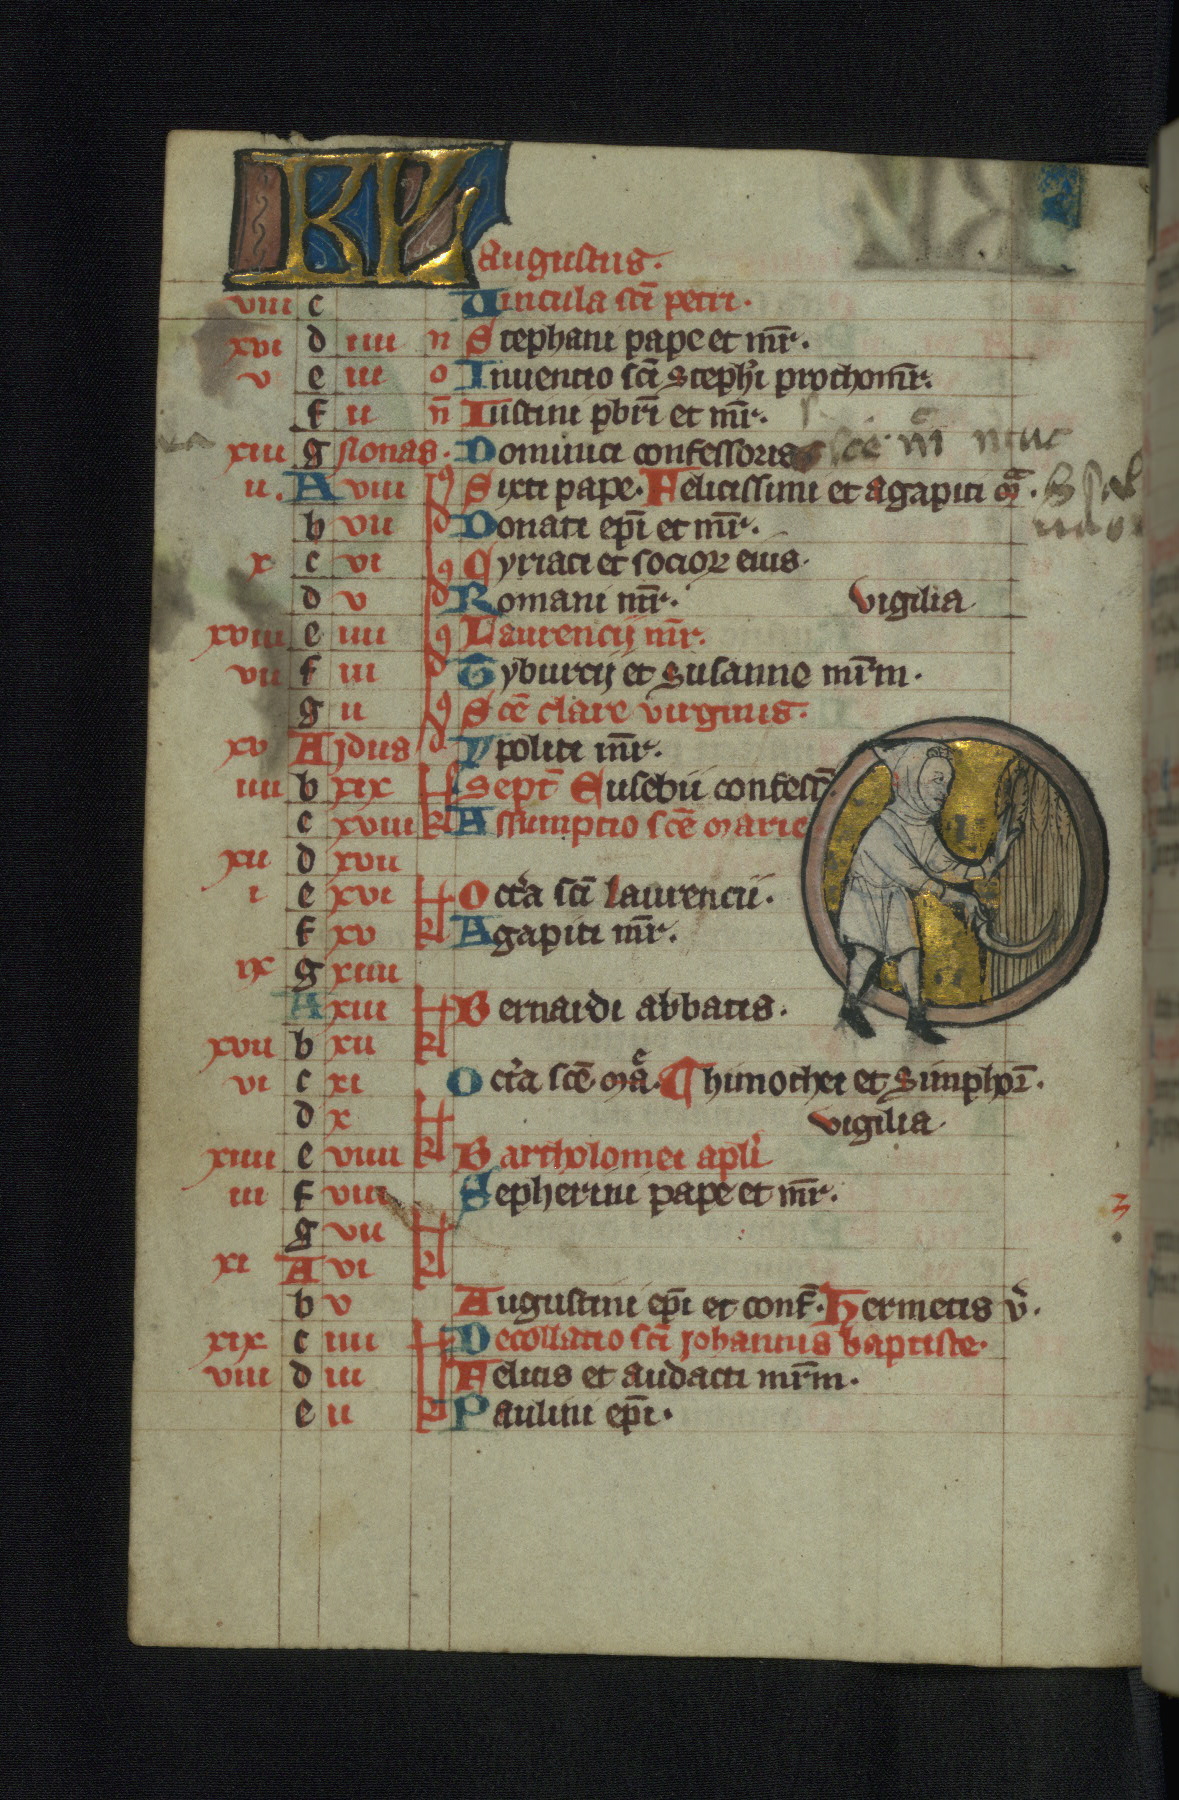 KL
Augustus.
viii c Vincula sci petri.
xvi d iiii n Stephani pape et mr̄.
v e iii o Inuencio sci Steph̄i prothomr̄.
f ii n̄ Iustini pbr̄i et mr̄.
xiii g Nonas. Dominici confessoris sce
ii. A viii Sixti pape. Felicissimi et agapiti m̄.
b vii d Donati ep̄i et mr̄.
x c vi Cyriaci et socioꝝ eius.
d v d Romani mr̄. vigilia
xviii e iiii Laurencij mr̄.
vii f iii d Tyburcij et Susanne mr̄m.
g ii Sce clare virginis.
xv A Idus d Ypoliti mr̄.
iiii b xix Sept̄ Eusebii confess̄
c xviii kl Assumptio sce marie
xii d xvii
i e xvi Oct̄a sci laurencii.
f xv kl Agapiti mr̄.
ix g xiiii
A xiii Bernardi abbatis.
xvii b xii kl
vi c xi Oct̄a sce mā. Thimothei et Simphor̄.
d x vigilia.
xiiii e viiii kl Bartholomei apl̄i
iii f viii Sepherini pape et mr̄.
g vii
xi A vi kl
b v Augustini ep̄i et conf̄. Hermetis v̄.
xix c iiii Decollatio sci Johannis baptiste.
viii d iii Felicis et audacti mr̄m.
e ii kl Paulini ep̄i.